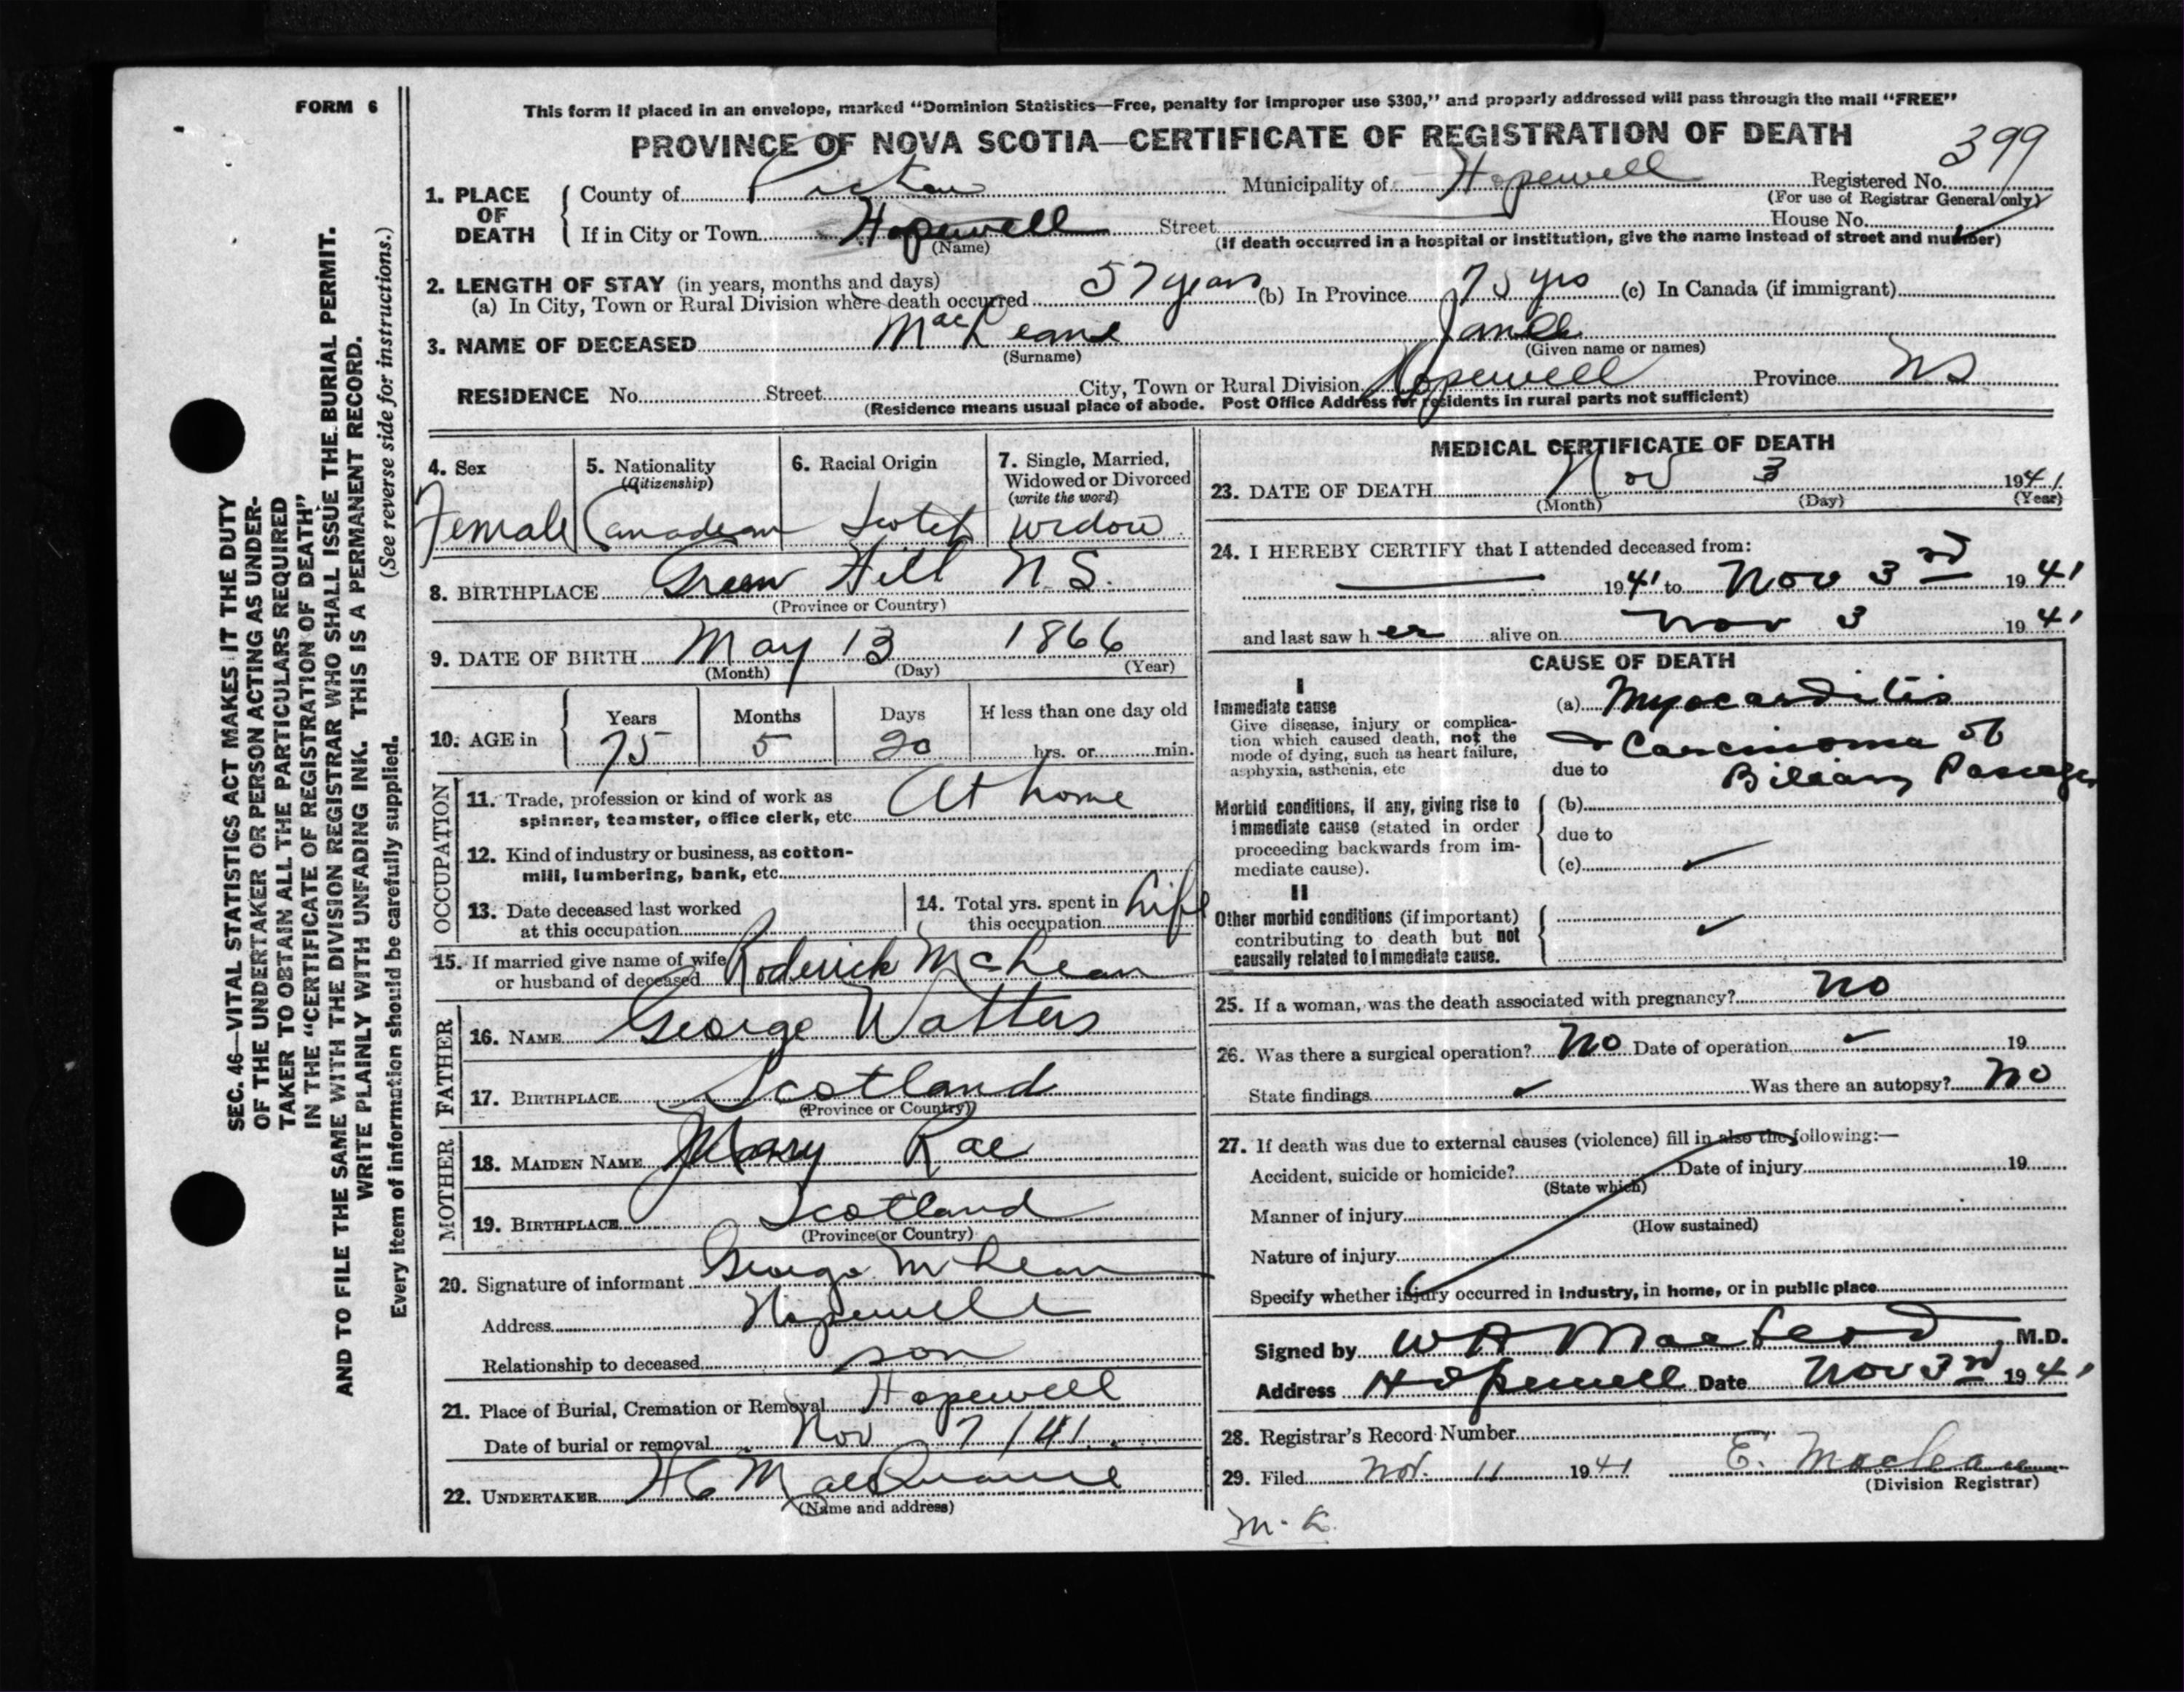 FORM 6
This form if placed in an envelope, marked “Dominion Statistics—Free, penalty for improper use $300,” and properly addressed will pass through the mail “FREE”
PROVINCE OF NOVA SCOTIA—CERTIFICATE OF REGISTRATION OF DEATH
399
1. PLACE OF DEATH { County of Pictou Municipality of Hopewell Registered No.
(For use of Registrar General only)
If in City or Town Hopewell Street House No.
(Name) (If death occurred in a hospital or institution, give the name instead of street and number)
2. LENGTH OF STAY (in years, months and days)
(a) In City, Town or Rural Division where death occurred 57 years (b) In Province 75 yrs (c) In Canada (if immigrant)
3. NAME OF DECEASED MacLean
(Surname) (Given name or names)
RESIDENCE No. Street City, Town or Rural Division Hopewell Province NS
(Residence means usual place of abode. Post Office Address for residents in rural parts not sufficient)
4. Sex Female
5. Nationality (Citizenship) Canadian
6. Racial Origin Scotch
7. Single, Married, Widowed or Divorced (write the word) widow
8. BIRTHPLACE Green Hill N.S.
(Province or Country)
9. DATE OF BIRTH May 13 1866
(Month) (Day) (Year)
10. AGE in { Years Months Days If less than one day old
75 5 20 hrs. or min.
OCCUPATION
11. Trade, profession or kind of work as spinner, teamster, office clerk, etc. At home
12. Kind of industry or business, as cotton-mill, lumbering, bank, etc.
13. Date deceased last worked at this occupation
14. Total yrs. spent in this occupation Life
15. If married give name of wife or husband of deceased Roderick McLean
FATHER
16. NAME George Watters
17. BIRTHPLACE Scotland
(Province or Country)
MOTHER
18. MAIDEN NAME Mary Rae
19. BIRTHPLACE Scotland
(Province or Country)
20. Signature of informant George McLean
Address Hopewell
Relationship to deceased son
21. Place of Burial, Cremation or Removal Hopewell
Date of burial or removal Nov 7/41
22. UNDERTAKER H C MacQuarrie
(Name and address)
MEDICAL CERTIFICATE OF DEATH
23. DATE OF DEATH Nov 3 1941
(Month) (Day) (Year)
24. I HEREBY CERTIFY that I attended deceased from:
— 1941 to Nov 3rd 1941
and last saw her alive on Nov 3 1941
CAUSE OF DEATH
I
Immediate cause
Give disease, injury or complication which caused death, not the mode of dying, such as heart failure, asphyxia, asthenia, etc
(a) Myocarditis
Carcinoma of
due to Biliary Passages
Morbid conditions, if any, giving rise to immediate cause (stated in order proceeding backwards from immediate cause).
(b)
due to
(c)
II
Other morbid conditions (if important) contributing to death but not causally related to immediate cause.
25. If a woman, was the death associated with pregnancy? no
26. Was there a surgical operation? No Date of operation 19
State findings Was there an autopsy? No
27. If death was due to external causes (violence) fill in also the following:—
Accident, suicide or homicide? Date of injury 19
(State which)
Manner of injury
(How sustained)
Nature of injury
Specify whether injury occurred in industry, in home, or in public place
Signed by W A MacLeod, M.D.
Address Hopewell Date Nov 3rd 1941
28. Registrar’s Record Number
29. Filed Nov. 11 1941 E. MacLean
(Division Registrar)
M. K.
SEC. 46—VITAL STATISTICS ACT MAKES IT THE DUTY
OF THE UNDERTAKER OR PERSON ACTING AS UNDER-
TAKER TO OBTAIN ALL THE PARTICULARS REQUIRED
IN THE “CERTIFICATE OF REGISTRATION OF DEATH”
AND TO FILE THE SAME WITH THE DIVISION REGISTRAR WHO SHALL ISSUE THE BURIAL PERMIT.
WRITE PLAINLY WITH UNFADING INK. THIS IS A PERMANENT RECORD.
(See reverse side for instructions.)
Every item of information should be carefully supplied.